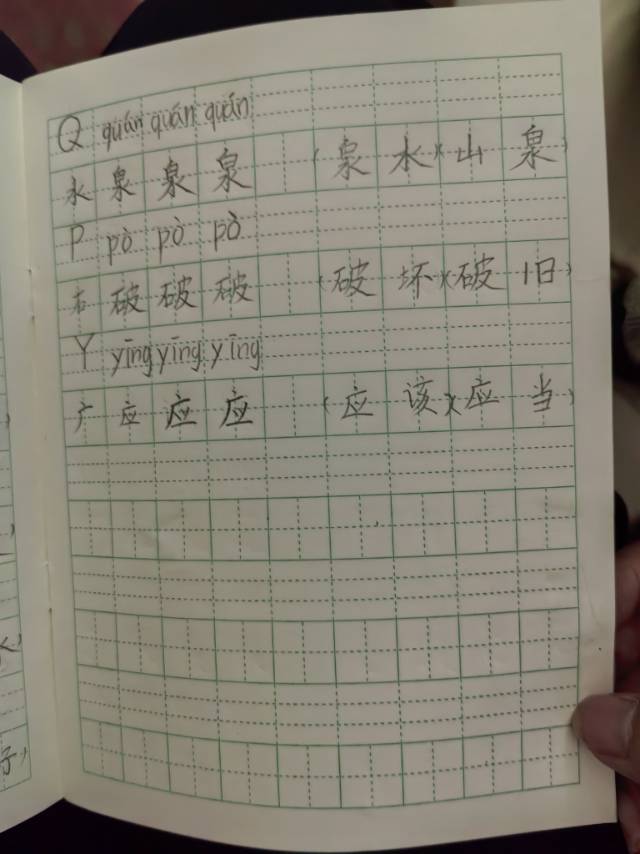 Q quán quán quán
水 泉 泉 泉 (泉 水)(山 泉)
P pò pò pò
石 破 破 破 (破 坏)(破 旧)
Y yīng yīng yīng
广 应 应 应 (应 该)(应 当)
子)